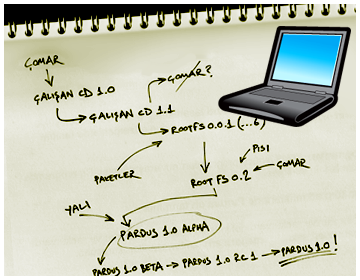 ÇOMAR
ÇALIŞAN CD 1.0
ÇOMAR?
ÇALIŞAN CD 1.1
ROOTFS 0.0.1 (...6)
PİSİ
PAKETLER
ROOT FS 0.2
ÇOMAR
YALI
PARDUS 1.0 ALPHA
PARDUS 1.0 BETA → PARDUS 1.0 RC 1 → PARDUS 1.0!